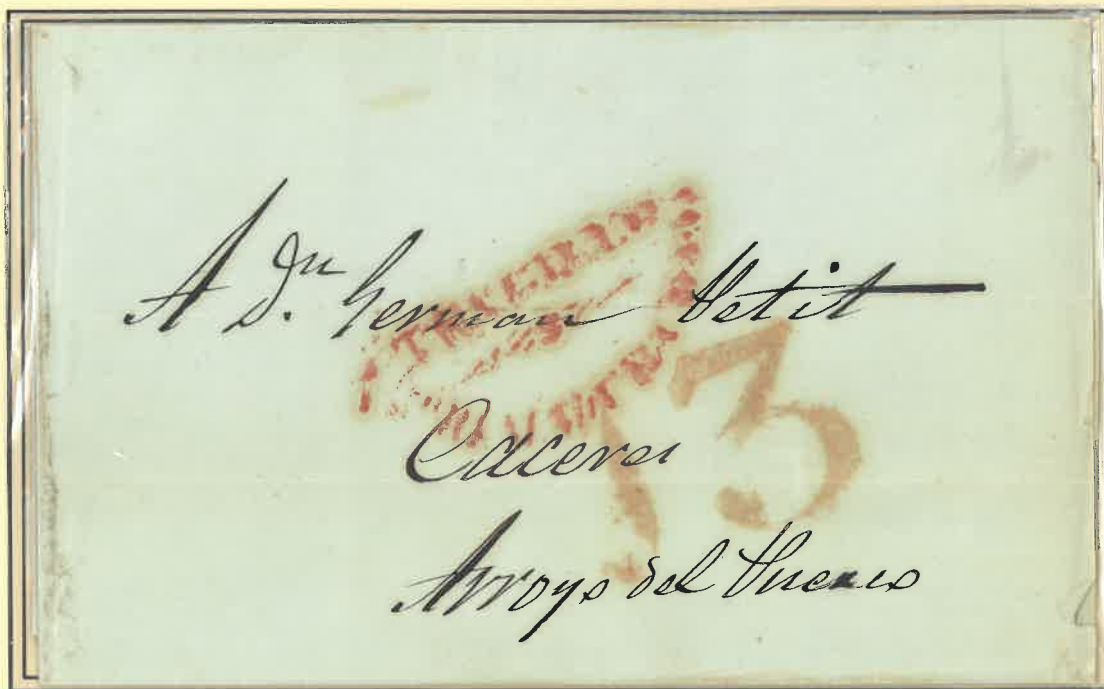 A Dn. German Petit
Caceres
Arroyo del Puerco
13